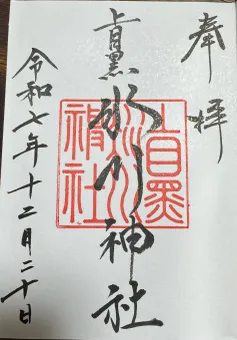 奉拝
上目黒氷川神社
令和七年十二月二十日
上目黒
氷川
神社